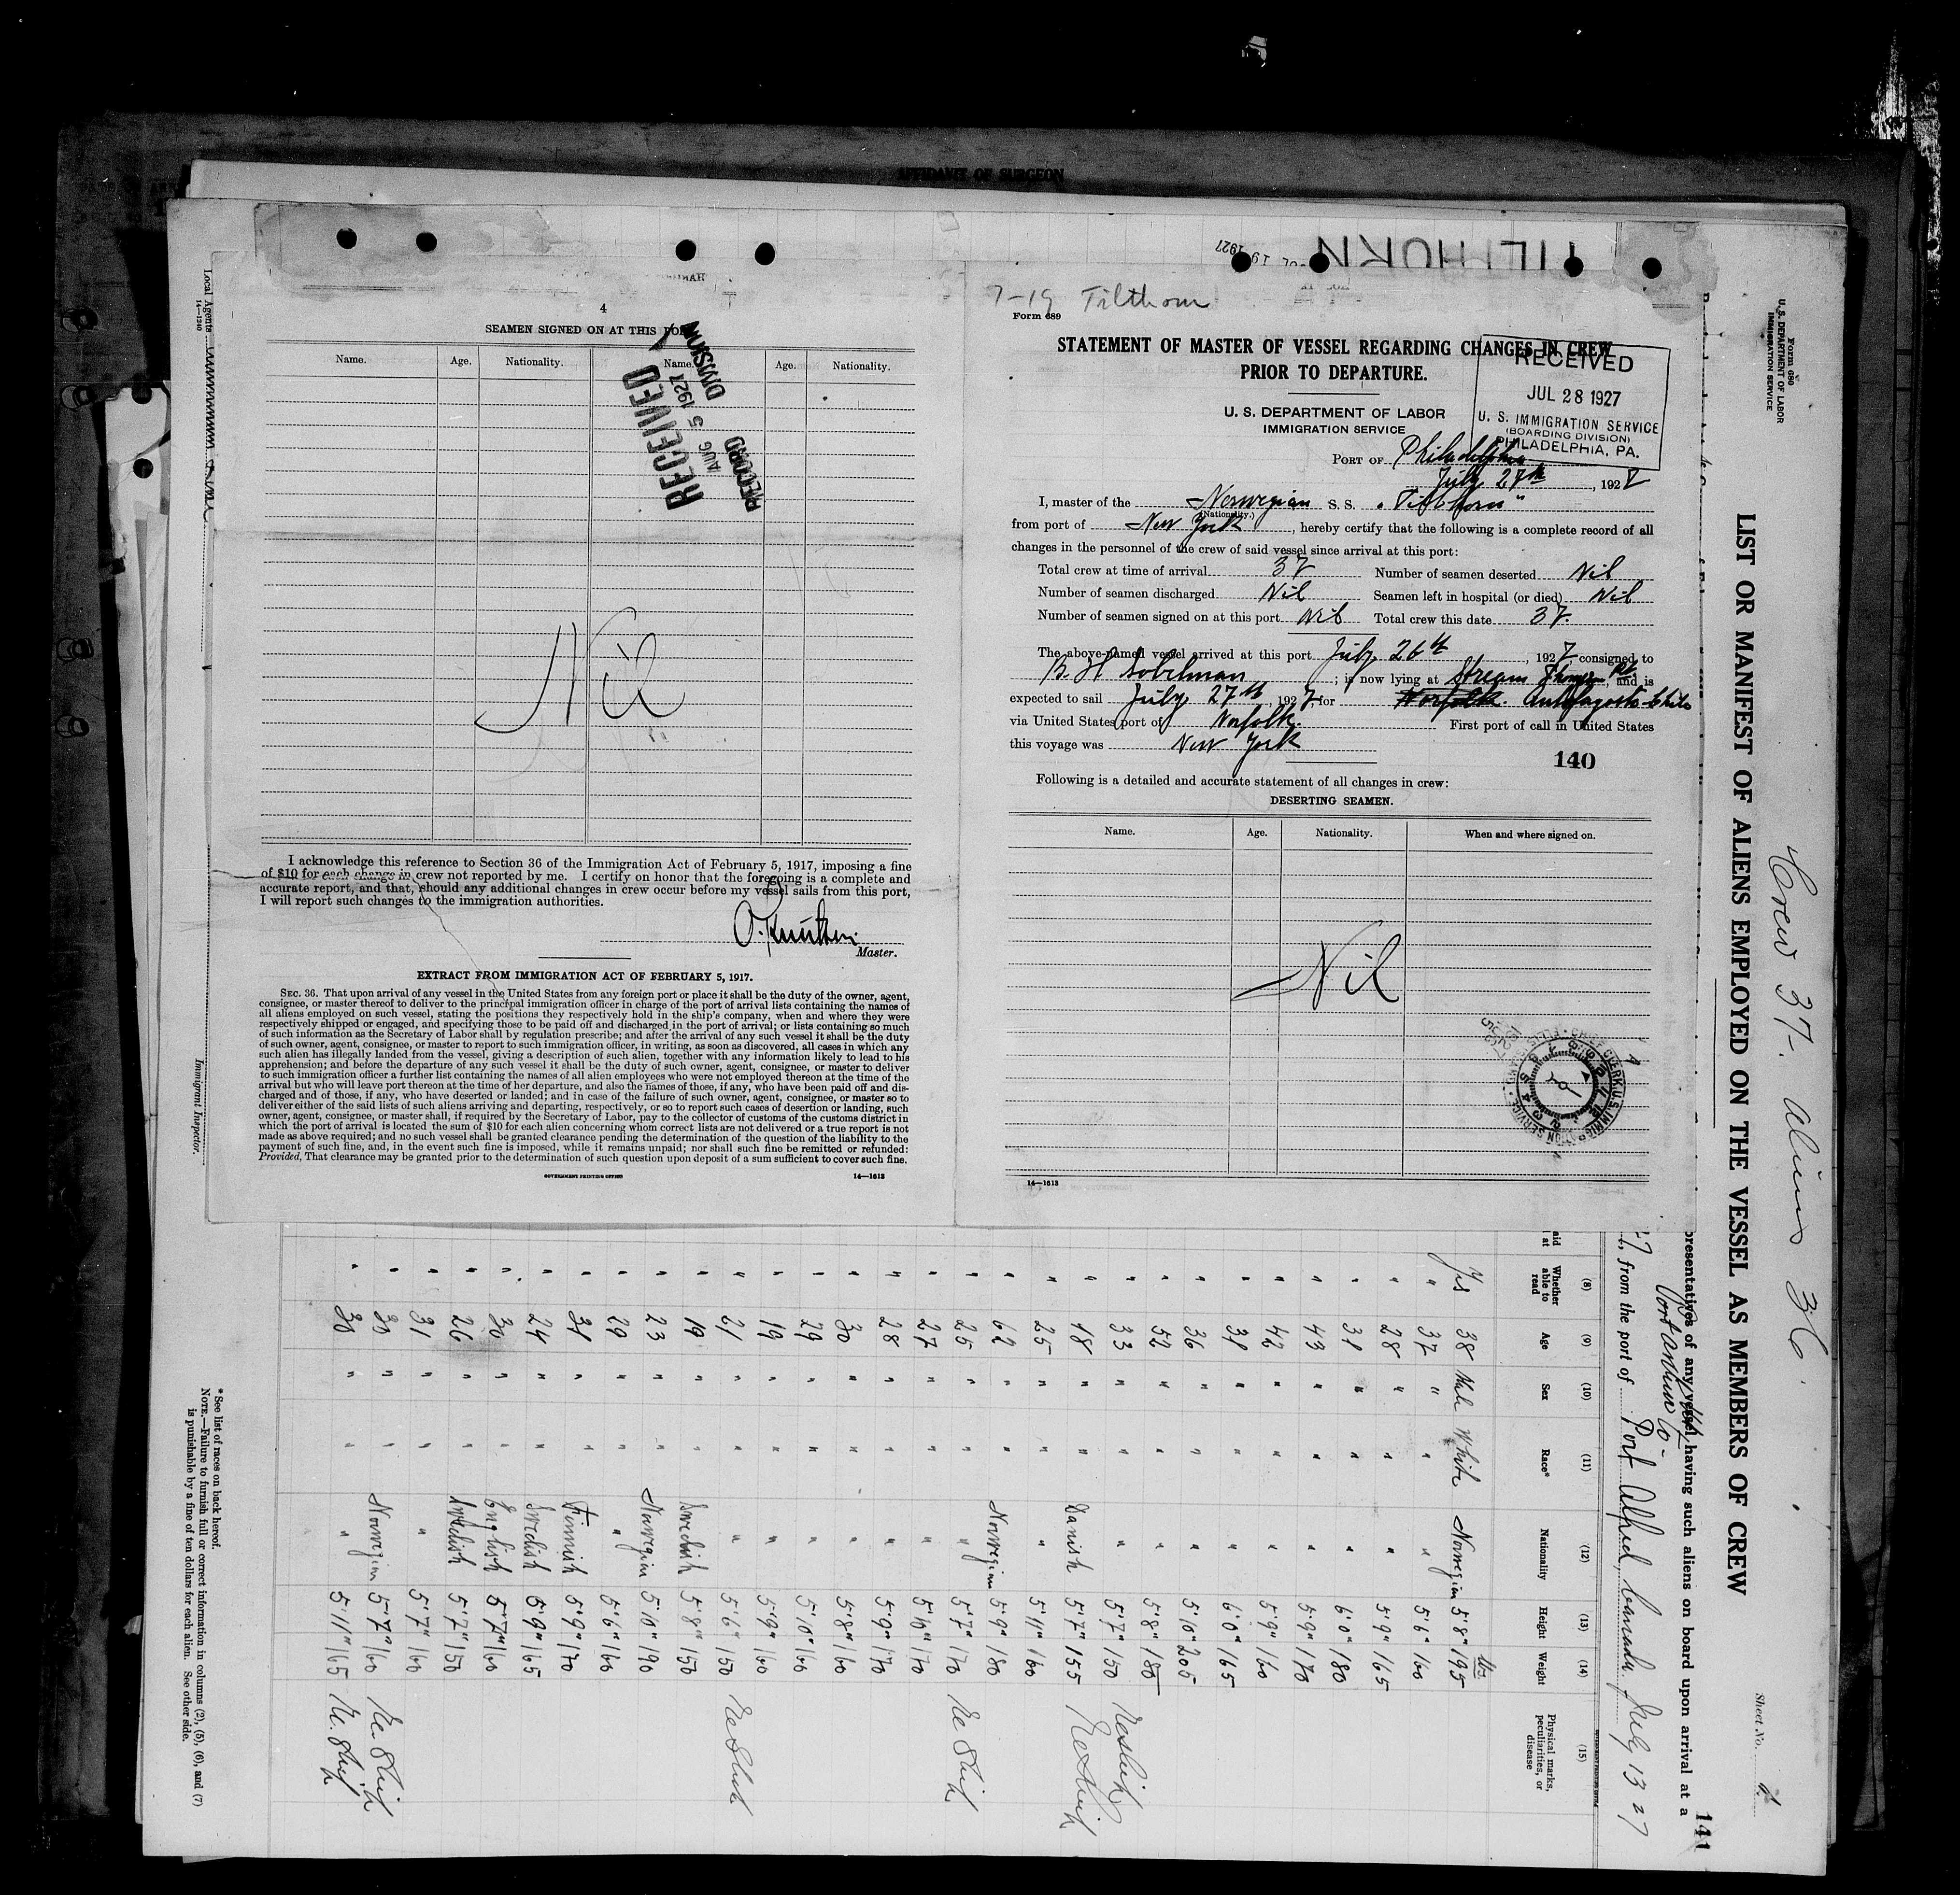 AFFIDAVIT OF SURGEON
TILTHORN
1927
4
SEAMEN SIGNED ON AT THIS PORT
Name. Age. Nationality. Name. Age. Nationality.
RECEIVED
AUG 5 1927
RECORD DIVISION
Nil
I acknowledge this reference to Section 36 of the Immigration Act of February 5, 1917, imposing a fine
of $10 for each change in crew not reported by me. I certify on honor that the foregoing is a complete and
accurate report, and that, should any additional changes in crew occur before my vessel sails from this port,
I will report such changes to the immigration authorities.
Master.
EXTRACT FROM IMMIGRATION ACT OF FEBRUARY 5, 1917.
SEC. 36. That upon arrival of any vessel in the United States from any foreign port or place it shall be the duty of the owner, agent,
consignee, or master thereof to deliver to the principal immigration officer in charge of the port of arrival lists containing the names of
all aliens employed on such vessel, stating the positions they respectively hold in the ship's company, when and where they were
respectively shipped or engaged, and specifying those to be paid off and discharged in the port of arrival; or lists containing so much
of such information as the Secretary of Labor shall by regulation prescribe; and after the arrival of any such vessel it shall be the duty
of such owner, agent, consignee, or master to report to such immigration officer, in writing, as soon as discovered, all cases in which any
such alien has illegally landed from the vessel, giving a description of such alien, together with any information likely to lead to his
apprehension; and before the departure of any such vessel it shall be the duty of such owner, agent, consignee, or master to deliver
to such immigration officer a further list containing the names of all alien employees who were not employed thereon at the time of the
arrival but who will leave port thereon at the time of her departure, and also the names of those, if any, who have been paid off and dis-
charged and of those, if any, who have deserted or landed; and in case of the failure of such owner, agent, consignee, or master so to
deliver either of the said lists of such aliens arriving and departing, respectively, or so to report such cases of desertion or landing, such
owner, agent, consignee, or master shall, if required by the Secretary of Labor, pay to the collector of customs of the customs district in
which the port of arrival is located the sum of $10 for each alien concerning whom correct lists are not delivered or a true report is not
made as above required; and no such vessel shall be granted clearance pending the determination of the question of the liability to the
payment of such fine, and, in the event such fine is imposed, while it remains unpaid; nor shall such fine be remitted or refunded:
Provided, That clearance may be granted prior to the determination of such question upon deposit of a sum sufficient to cover such fine.
GOVERNMENT PRINTING OFFICE 14—1613
7-19 Tilthorn
Form 689
STATEMENT OF MASTER OF VESSEL REGARDING CHANGES IN CREW
PRIOR TO DEPARTURE.
U. S. DEPARTMENT OF LABOR
IMMIGRATION SERVICE
RECEIVED
JUL 28 1927
U. S. IMMIGRATION SERVICE
(BOARDING DIVISION)
PHILADELPHIA, PA.
PORT OF Philadelphia
July 27th, 1927
I, master of the Norwegian S. S. "Tilthorn"
(Nationality.)
from port of New York, hereby certify that the following is a complete record of all
changes in the personnel of the crew of said vessel since arrival at this port:
Total crew at time of arrival 37 Number of seamen deserted Nil
Number of seamen discharged Nil Seamen left in hospital (or died) Nil
Number of seamen signed on at this port Nil Total crew this date 37.
The above-named vessel arrived at this port July 26th, 1927, consigned to
B. H. Sobelman; is now lying at Stream Thompson Pt, and is
expected to sail July 27th, 1927, for Norfolk. Antofagosta-Chile
via United States port of Norfolk. First port of call in United States
this voyage was New York
140
Following is a detailed and accurate statement of all changes in crew:
DESERTING SEAMEN.
Name. Age. Nationality. When and where signed on.
Nil
14—1613
Form 680
U. S. DEPARTMENT OF LABOR
IMMIGRATION SERVICE
Crew 37. Aliens 36.
LIST OR MANIFEST OF ALIENS EMPLOYED ON THE VESSEL AS MEMBERS OF CREW
Sheet No. 1.
141
resentatives of any vessel having such aliens on board upon arrival at a
27, from the port of Port Alfred, Canada July 13 27
(8) (9) (10) (11) (12) (13) (14) (15)
Whether able to read Age Sex Race* Nationality Height Weight Physical marks, peculiarities, or disease
Yes 38 Male White Norwegian 5'8" 195
" 37 " " " 5'6" 160
" 28 " " " 5'9" 165
" 31 " " " 6'0" 180
" 43 " " " 5'9" 170
" 42 " " " 5'9" 160
" 31 " " " 6'0" 165
" 36 " " " 5'10" 205
" 52 " " " 5'8" 180
" 33 " " " 5'7" 150
" 18 " " Danish 5'7" 155
" 25 " " " 5'11" 160
" 62 " " Norwegian 5'9" 180
" 25 " " " 5'7" 170
" 27 " " " 5'10" 170
" 28 " " " 5'9" 170
" 30 " " " 5'8" 160
" 29 " " " 5'10" 160
" 19 " " " 5'9" 160
" 21 " " " 5'6" 150
" 19 " " Swedish 5'8" 150
" 23 " " Norwegian 5'10" 190
" 29 " " " 5'6" 160
" 31 " " Finnish 5'9" 170
" 24 " " Swedish 5'9" 165
" 30 " " English 5'7" 160
" 26 " " Swedish 5'7" 150
" 31 " " " 5'7" 160
" 30 " " Norwegian 5'7" 160
" 30 " " " 5'11" 165
* See list of races on back hereof.
NOTE.—Failure to furnish full or correct information in columns (2), (5), (6), and (7)
is punishable by a fine of ten dollars for each alien. See other side.
Local Agents
14—1240
Immigrant Inspector.